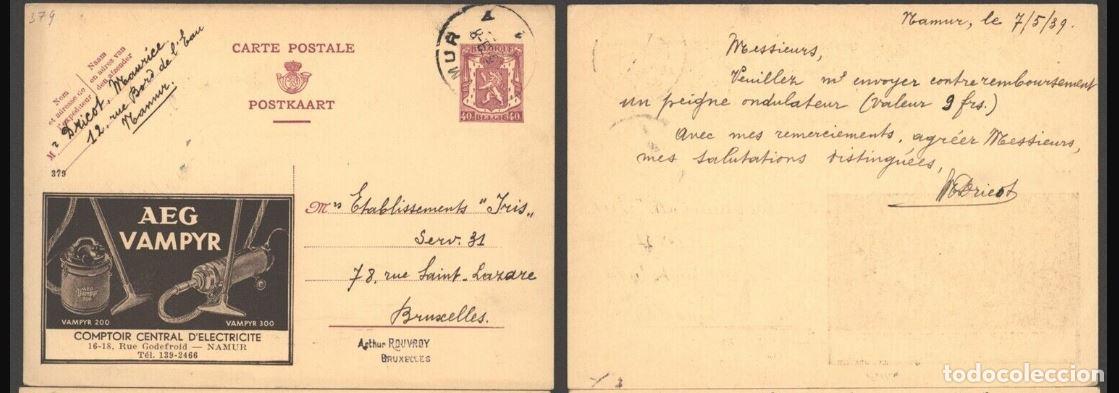 379
CARTE POSTALE
POSTKAART
Nom
et adresse de
l'expéditeur
Naam
en adres van
den afzender
Mr Dricot, Maurice
12, rue Bord de l'Eau
Namur.
MUR
BELGIQUE
40 BELGIE 40
379
AEG
VAMPYR
VAMPYR 200
VAMPYR 300
COMPTOIR CENTRAL D'ELECTRICITE
16-18, Rue Godefroid — NAMUR
Tél. 139-2466
Mrs Etablissements "Iris"
Serv. 31
78, rue Saint-Lazare
Bruxelles.
Arthur ROUVROY
BRUXELLES
Namur, le 7/5/39.
Messieurs,
Veuillez m'envoyer contre remboursement
un peigne ondulateur (valeur 9 frs.)
Avec mes remerciements, agréer Messieurs,
mes salutations distinguées,
MDricot
todocoleccion